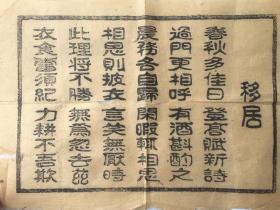 移居
春秋多佳日 登高賦新詩
過門更相呼 有酒斟酌之
農務各自歸 閒暇輒相思
相思則披衣 言笑無厭時
此理將不勝 無爲忽去茲
衣食當須紀 力耕不吾欺